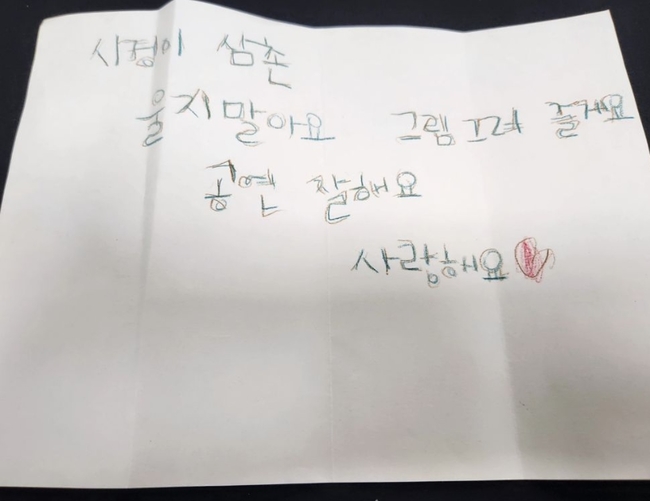 시정이 삼촌
울지말아요 그렘 그려 줄게요
공연 잘해요
사랑해요